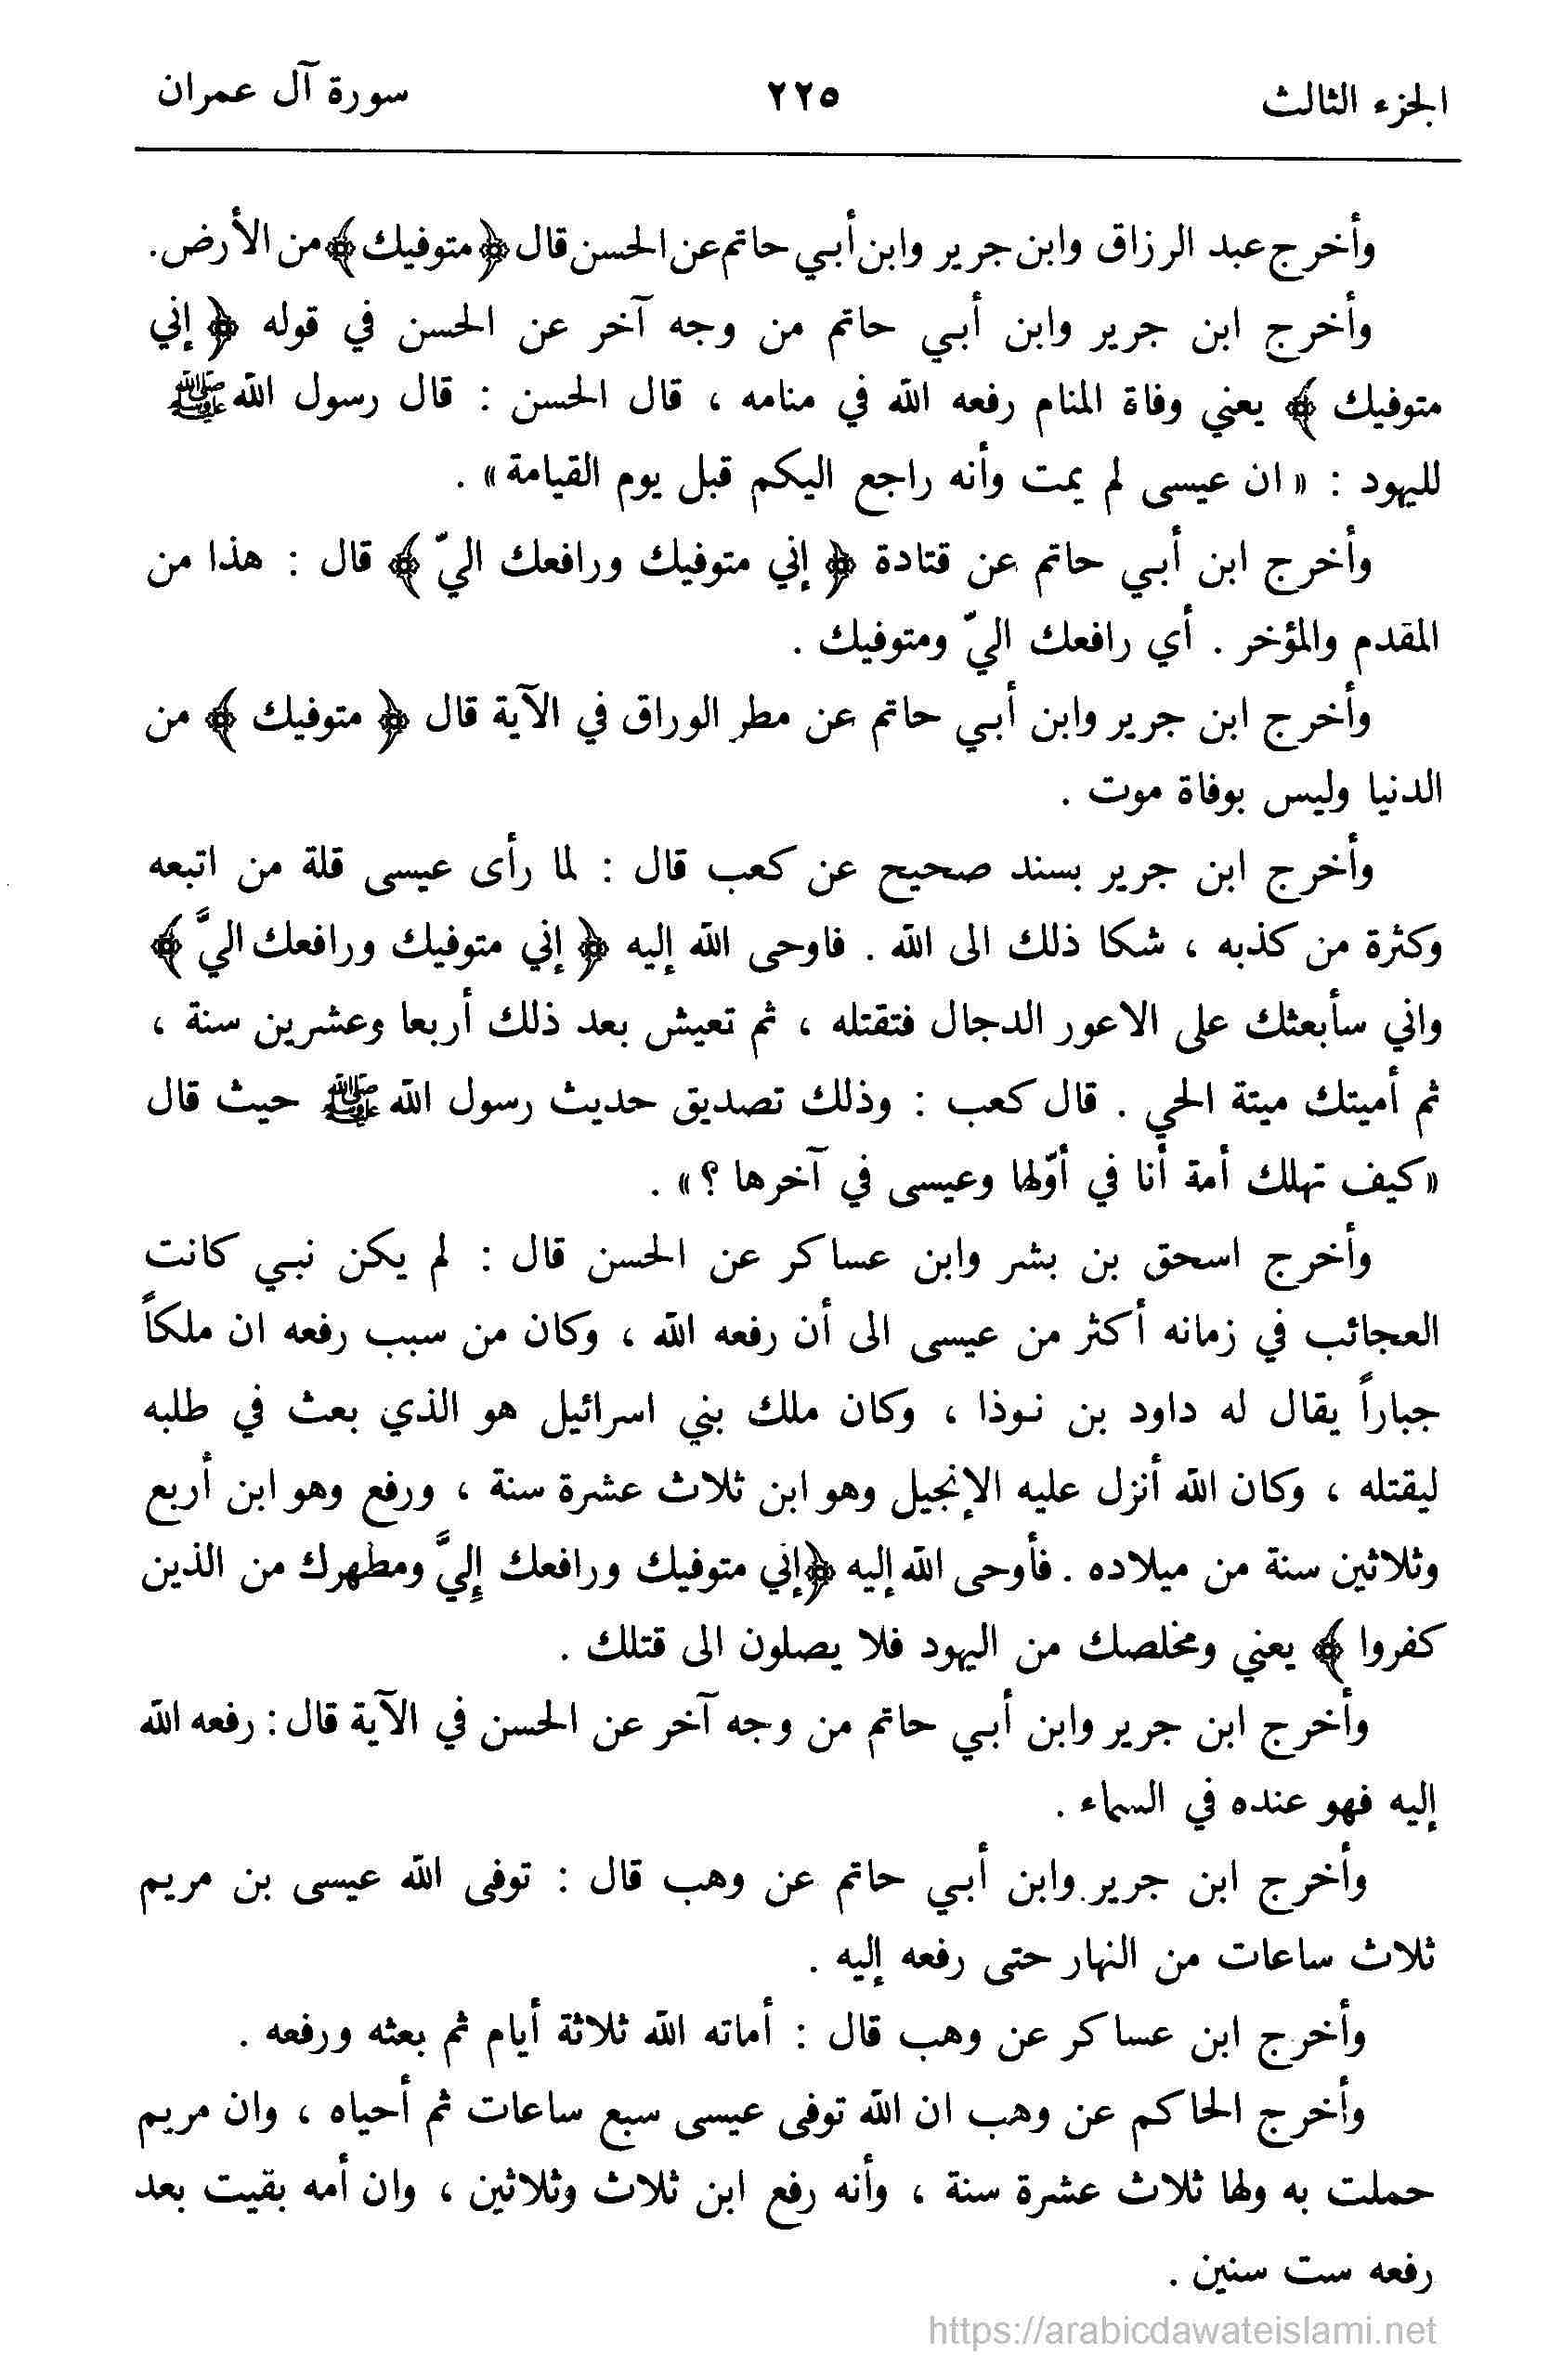 الجزء الثالث ٢٢٥ سورة آل عمران
وأخرج عبد الرزاق وابن جرير وابن أبي حاتم عن الحسن قال ﴿ متوفيك ﴾ من الأرض.
وأخرج ابن جرير وابن أبي حاتم من وجه آخر عن الحسن في قوله ﴿ إني
متوفيك ﴾ يعني وفاة المنام رفعه الله في منامه ، قال الحسن : قال رسول الله ﷺ
لليهود : « ان عيسى لم يمت وأنه راجع اليكم قبل يوم القيامة » .
وأخرج ابن أبي حاتم عن قتادة ﴿ إني متوفيك ورافعك اليّ ﴾ قال : هذا من
المقدم والمؤخر . أي رافعك اليّ ومتوفيك .
وأخرج ابن جرير وابن أبي حاتم عن مطر الوراق في الآية قال ﴿ متوفيك ﴾ من
الدنيا وليس بوفاة موت .
وأخرج ابن جرير بسند صحيح عن كعب قال : لما رأى عيسى قلة من اتبعه
وكثرة من كذبه ، شكا ذلك الى الله . فاوحى الله إليه ﴿ إني متوفيك ورافعك اليَّ ﴾
واني سأبعثك على الاعور الدجال فتقتله ، ثم تعيش بعد ذلك أربعا وعشرين سنة ،
ثم أميتك ميتة الحي . قال كعب : وذلك تصديق حديث رسول الله ﷺ حيث قال
« كيف تهلك أمة أنا في أوّلها وعيسى في آخرها ؟ » .
وأخرج اسحق بن بشر وابن عساكر عن الحسن قال : لم يكن نبي كانت
العجائب في زمانه أكثر من عيسى الى أن رفعه الله ، وكان من سبب رفعه ان ملكاً
جباراً يقال له داود بن نوذا ، وكان ملك بني اسرائيل هو الذي بعث في طلبه
ليقتله ، وكان الله أنزل عليه الإنجيل وهو ابن ثلاث عشرة سنة ، ورفع وهو ابن أربع
وثلاثين سنة من ميلاده . فأوحى الله إليه ﴿ إني متوفيك ورافعك إليَّ ومطهرك من الذين
كفروا ﴾ يعني ومخلصك من اليهود فلا يصلون الى قتلك .
وأخرج ابن جرير وابن أبي حاتم من وجه آخر عن الحسن في الآية قال : رفعه الله
إليه فهو عنده في السماء .
وأخرج ابن جرير وابن أبي حاتم عن وهب قال : توفى الله عيسى بن مريم
ثلاث ساعات من النهار حتى رفعه إليه .
وأخرج ابن عساكر عن وهب قال : أماته الله ثلاثة أيام ثم بعثه ورفعه .
وأخرج الحاكم عن وهب ان الله توفى عيسى سبع ساعات ثم أحياه ، وان مريم
حملت به ولها ثلاث عشرة سنة ، وأنه رفع ابن ثلاث وثلاثين ، وان أمه بقيت بعد
رفعه ست سنين .
https://arabicdawateislami.net